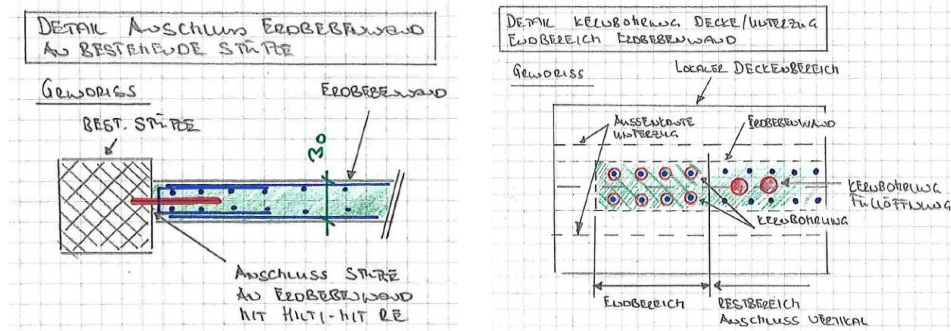 DETAIL ANSCHLUSS ERDBEBENWAND
AN BESTEHENDE STÜTZE
GRUNDRISS
BEST. STÜTZE
ERDBEBENWAND
30
ANSCHLUSS STÜTZE
AN ERDBEBENWAND
MIT HILTI-HIT RE
DETAIL KERNBOHRUNG DECKE/UNTERZUG
ENDBEREICH ERDBEBENWAND
GRUNDRISS
LOCALER DECKENBEREICH
AUSSENKANTE
UNTERZUG
ERDBEBENWAND
KERNBOHRUNG
FÜLLÖFFNUNG
KERNBOHRUNG
ENDBEREICH
RESTBEREICH
ANSCHLUSS VERTIKAL